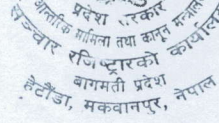 प्रदेश सरकार
आन्तरिक मामिला तथा कानून मन्त्रालय
सञ्चार रजिष्ट्रारको कार्यालय
बागमती प्रदेश
हेटौंडा, मकवानपुर, नेपाल